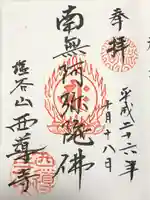 奉拝
平成二十六年
十月十八日
南無阿弥陀佛
塩谷山西蓮寺